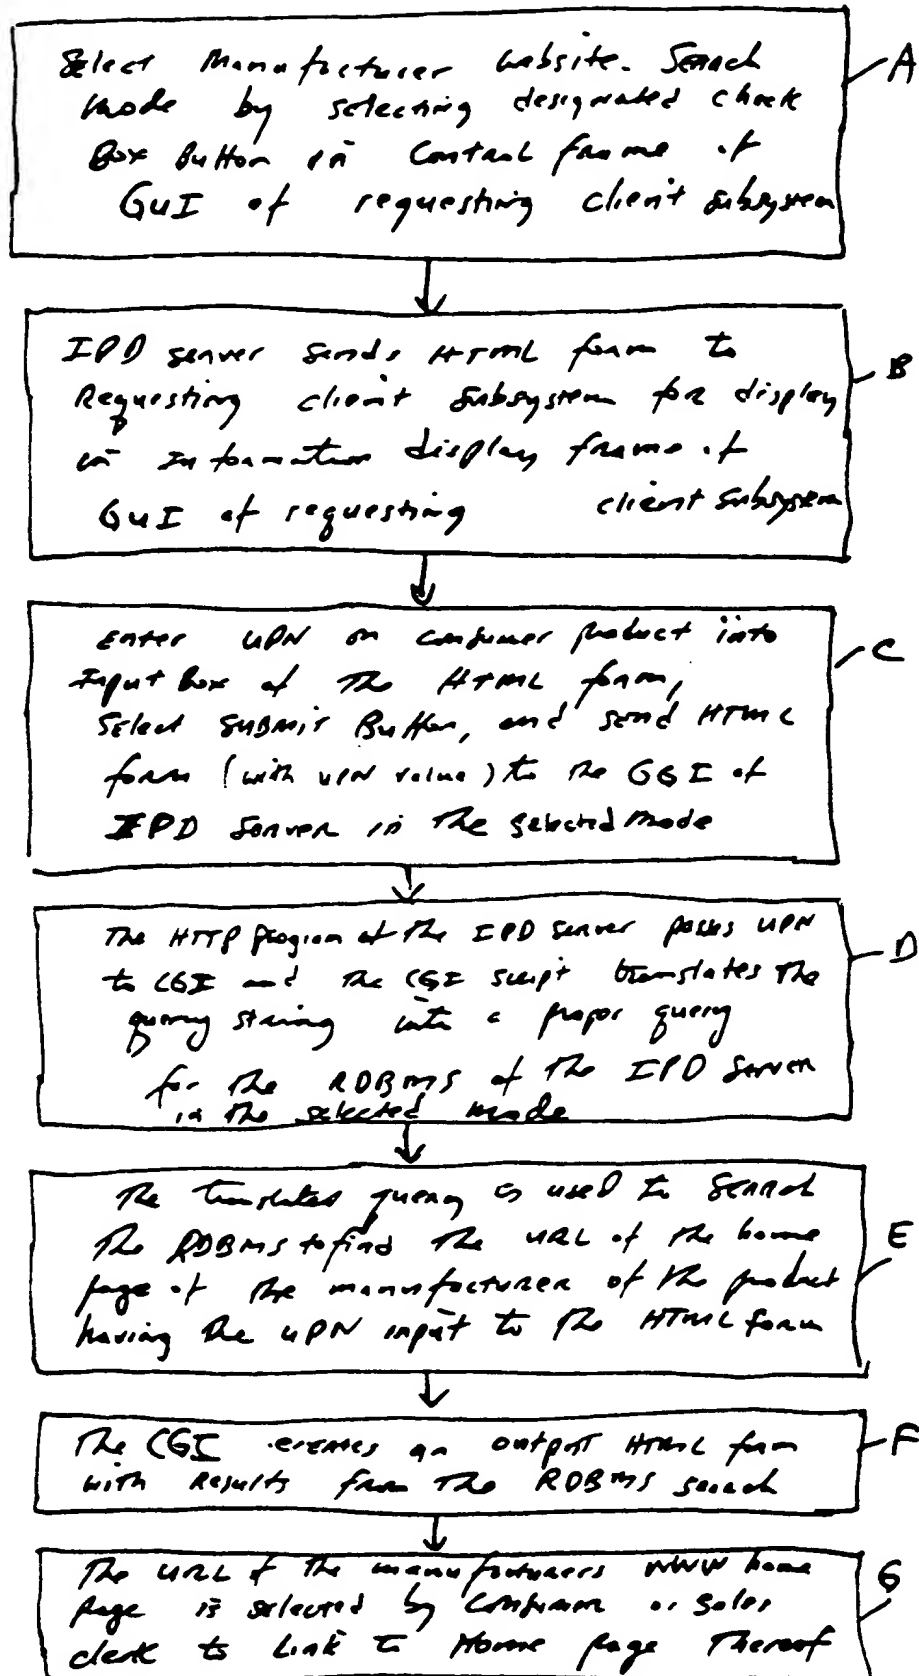 Select Manufacturer Website. Search
mode by selecting designated check
Box Button in Control frame of
GUI of requesting client subsystem
A
IPD server sends HTML form to
Requesting client subsystem for display
in Information display frame of
GUI of requesting client subsystem
B
Enter UPN on consumer product into
Input Box of the HTML form,
Select SUBMIT Button, and send HTML
form (with UPN value) to the GGI of
IPD Server in the selected mode
C
The HTTP program at the IPD server passes UPN
to CGI and the CGI script translates the
query string into a proper query
for the RDBMS of the IPD Server
in the selected mode
D
The translated query is used to search
The RDBMS to find the URL of the home
page of the manufacturer of the product
having the UPN input to the HTML form
E
The CGI creates an output HTML form
with Results from the RDBMS search
F
The URL of the manufacturers WWW home
page is selected by Consumer or Sales
clerk to Link to Home page Thereof
G